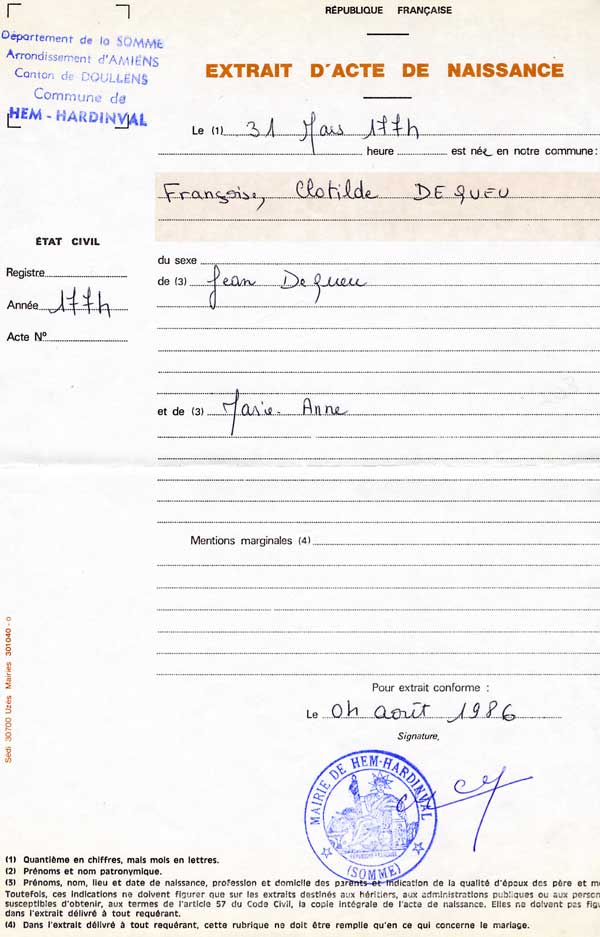 RÉPUBLIQUE FRANÇAISE
Département de la SOMME
Arrondissement d'AMIENS
Canton de DOULLENS
Commune de
HEM - HARDINVAL
EXTRAIT D'ACTE DE NAISSANCE
Le (1) 31 Mars 1774
heure est née en notre commune:
Françoise, Clotilde DEQUEU
ÉTAT CIVIL
Registre
Année 1774
Acte N°
du sexe
de (3) Jean Dequeu
et de (3) Marie-Anne
Mentions marginales (4)
Pour extrait conforme :
Le 04 août 1986
Signature,
MAIRIE DE HEM-HARDINVAL
RÉPUBLIQUE FRANÇAISE
(SOMME)
Sedi 30700 Uzès Mairies 301040 - 0
(1) Quantième en chiffres, mais mois en lettres.
(2) Prénoms et nom patronymique.
(3) Prénoms, nom, lieu et date de naissance, profession et domicile des parents et indication de la qualité d'époux des père et m
Toutefois, ces indications ne doivent figurer que sur les extraits destinés aux héritiers, aux administrations publiques ou aux person
susceptibles d'obtenir, aux termes de l'article 57 du Code Civil, la copie intégrale de l'acte de naissance. Elles ne doivent pas fig
dans l'extrait délivré à tout requérant.
(4) Dans l'extrait délivré à tout requérant, cette rubrique ne doit être remplie qu'en ce qui concerne le mariage.